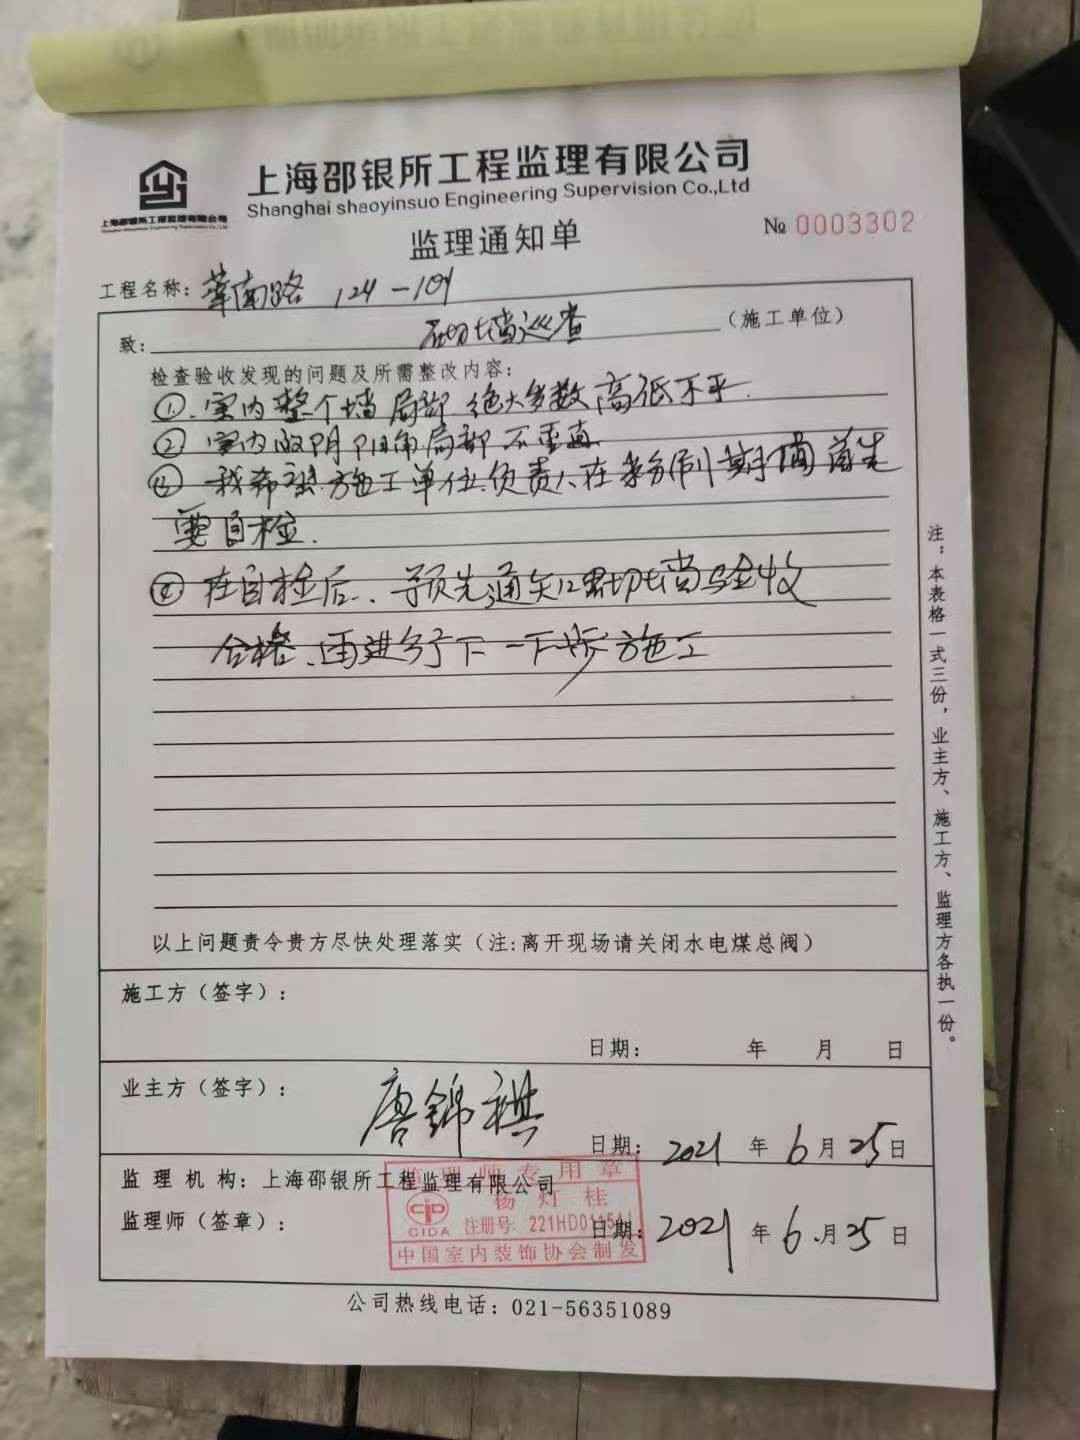 上海邵银所工程监理有限公司
Shanghai shaoyinsuo Engineering Supervision Co.,Ltd
上海邵银所工程监理有限公司
监理通知单
№ 0003302
工程名称: 莘南路 124-104
致: 砌墙巡查 (施工单位)
检查验收发现的问题及所需整改内容:
①、室内整个墙局部绝大多数高低不平.
② 室内的阴阳角局部不垂直
③ 我希望施工单位负责人在粉刷期间首先
要自检.
④ 在自检后、预先通知砌墙验收
合格、再进行下一下步施工
以上问题责令贵方尽快处理落实(注:离开现场请关闭水电煤总阀)
施工方(签字):
日期: 年 月 日
业主方(签字): 唐锦祺
日期: 2021 年 6 月 25 日
监理机构: 上海邵银所工程监理有限公司
监理师(签章):
日期: 2021 年 6 月 25 日
监理师专用章
杨灯桂
CIDA 注册号: 221HD01154
中国室内装饰协会制发
公司热线电话: 021-56351089
注:本表格一式三份,业主方、施工方、监理方各执一份。